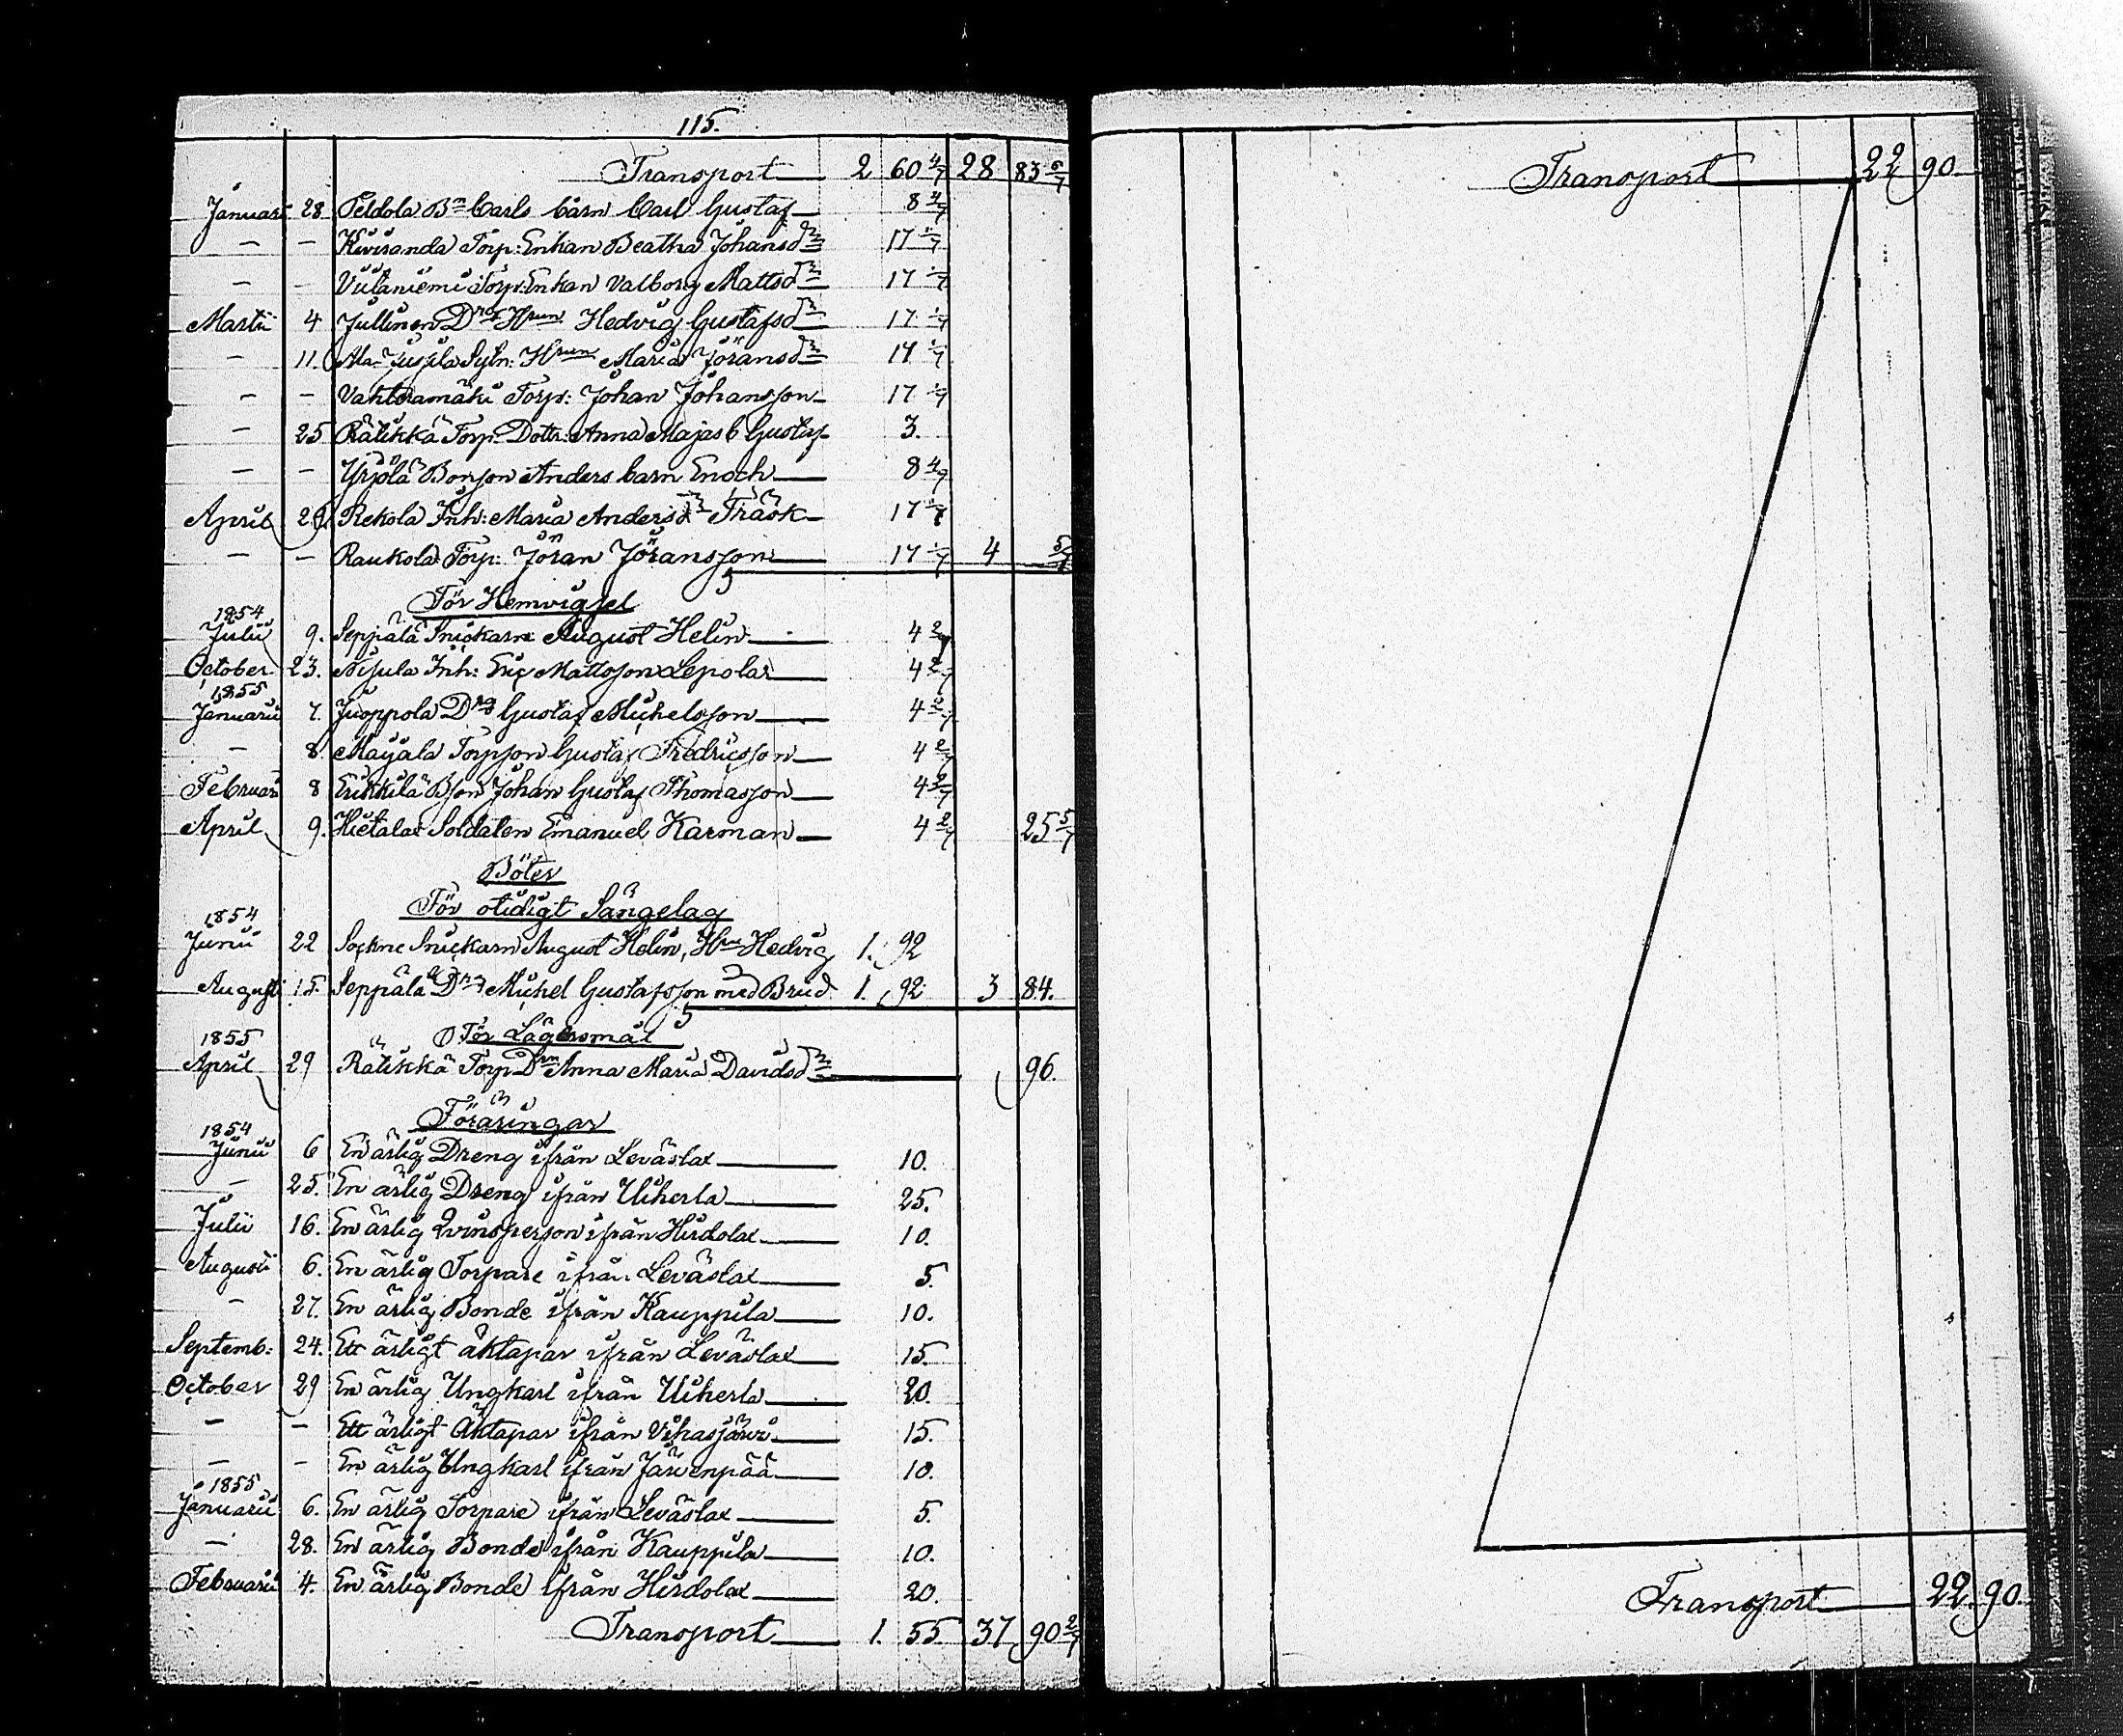 115.
Transport 2 60 4/7 28 83 6/7
Januari 28 Peldola Bn Carls barn Carl Gustaf 8 4/7
— — Kivisanda Torp: Enkan Beatha Johansdr 17 1/7
— — Torp: Enkan Valborg Mattsdr 17 1/7
Martii 4 Jullinen Drgs Hrun Hedvig Gustafsdr 17 1/7
— 11. Ala Juspla Sytn: Hrun Maria Jöransdr 17 1/7
— — Vahteramäki Torp: Johan Johansson 17 1/7
— 25 Rätikkä Torp: Dottr: Anna Majas b Gustaf 3.
— — Yrjölä Bonson Anders barn Enoch 8 4/7
April 29 Rekola Inh: Maria Andersdr Träsk 17 1/7
— — Raukola Torp: Jöran Jöransson 17 1/7 4 5/7
För Hemvigsel
1854
Julii 9. Seppälä Snickarn August Helin 4 2/7
October 23. Nisula Inh: Eric Mattsson Lepola 4 2/7
1855
Januarii 7. Juoppola Drg Gustaf Michelsson 4 2/7
— 8. Mayala Torpson Gustaf Fredricsson 4 2/7
Februari 8 Erikkilä Bson Johan Gustaf Thomasson 4 2/7
April 9. Hietala Soldaten Emanuel Karman 4 2/7 25 5/7
Böter
För otidigt Sängelag
1854
Junii 22 Sockne Snickarn August Helin, Hru Hedvig 1. 92
Augusti 15. Seppälä Drg Michel Gustafsson med Brud 1. 92 3 84.
För Lägersmål
1855
April 29 Rätikkä Torp Drn Anna Maria Davidsdr 96.
Föräringar
1854
Junii 6 En ärlig Dreng ifrån Leväslax 10.
— 25. En ärlig Dreng ifrån Uiherla 25.
Julii 16. En ärlig Qvinsperson ifrån Hirdola 10.
Augusti 6. En ärlig Torpare ifrån Leväslax 5.
— 27. En ärlig Bonde ifrån Kauppila 10.
Septemb: 24. Ett ärligt äktapar ifrån Leväslax 15.
October 29 En ärlig Ungkarl ifrån Uiherla 20.
— — Ett ärligt Äktapar ifrån Vihasjärvi 15.
— — En ärlig Ungkarl ifrån Järvenpää 10.
1855
Januarii 6. En ärlig Torpare ifrån Leväslax 5.
— 28. En ärlig Bonde ifrån Kauppila 10.
Februarii 4. En ärlig Bonde ifrån Hirdola 20.
Transport 1. 55 37 90 2/7
Transport 22 90
Transport 22 90.